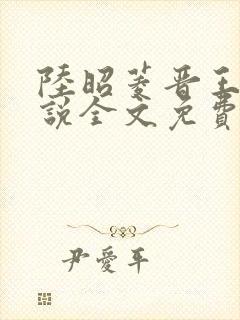 陸昭菱晉王
說全文免費
尹愛平